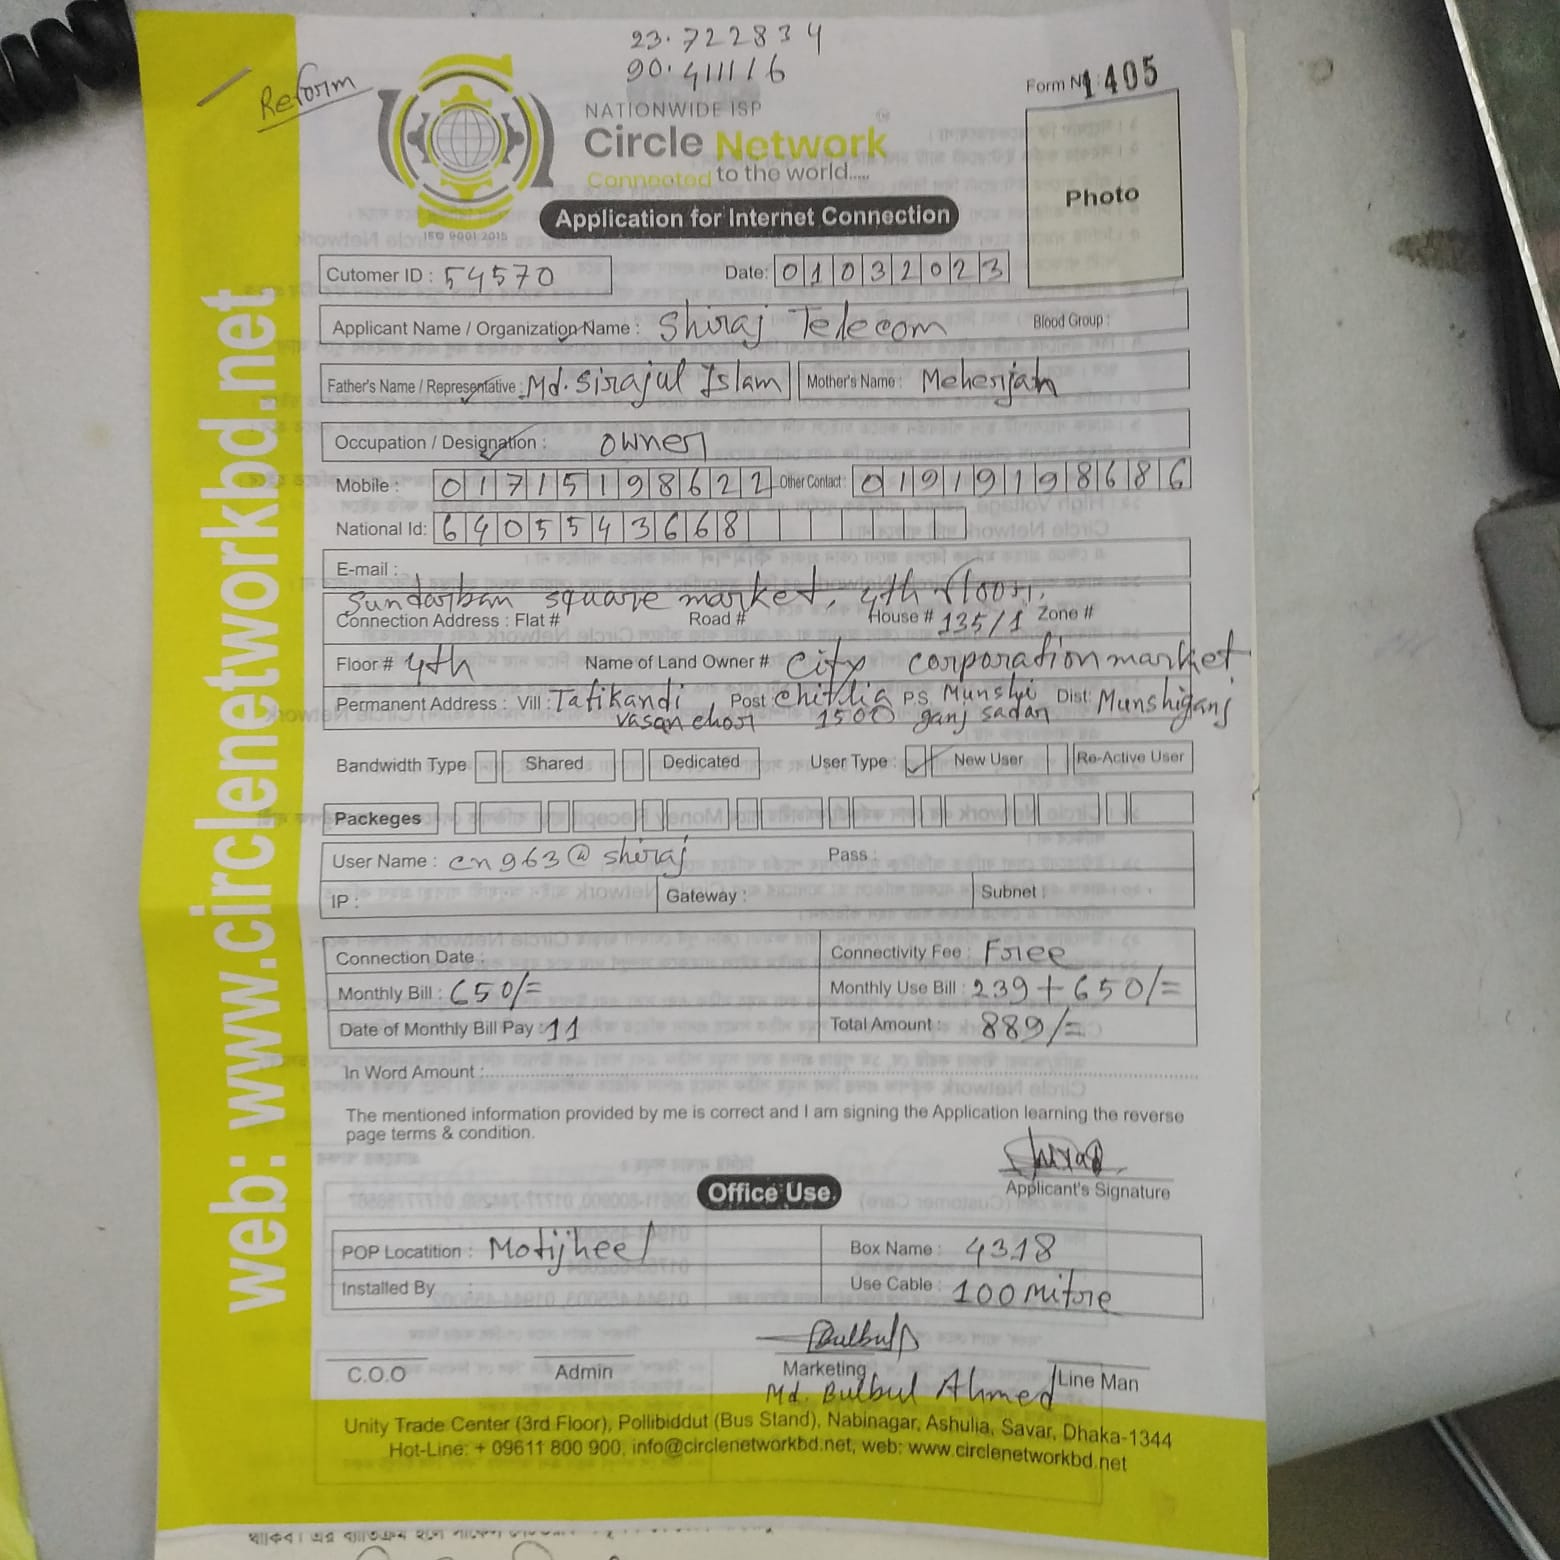 23.722834
90.411116
Reform
Form No 1405
NATIONWIDE ISP
Circle Network
Connected to the world.....
ISO 9001:2015
Application for Internet Connection
Photo
Cutomer ID : 54570 Date: 01032023
Applicant Name / Organization Name : Shiraj Telecom Blood Group :
Father's Name / Representative : Md. Sirajul Islam Mother's Name : Meherjah
Occupation / Designation : owner
Mobile : 01715198622 Other Contact : 01919198686
National Id: 6405543668
E-mail :
Sundarban square market, 4th floor,
Connection Address : Flat # Road # House # 135/1 Zone #
Floor # 4th Name of Land Owner # City corporation market
Permanent Address : Vill : Tatikandi Post : P.S Munshi Dist: Munshiganj
1500 ganj sadar
Bandwidth Type Shared Dedicated User Type : New User Re-Active User
Packeges
User Name : cn963@shiraj Pass :
IP : Gateway : Subnet :
Connection Date : Connectivity Fee : Free
Monthly Bill : 650/= Monthly Use Bill : 239+650/=
Date of Monthly Bill Pay : 11 Total Amount : 889/=
In Word Amount :
The mentioned information provided by me is correct and I am signing the Application learning the reverse
page terms & condition.
Shiraj
Applicant's Signature
Office Use
POP Locatition : Motijheel Box Name : 4318
Installed By : Use Cable : 100 mitre
Bulbul
C.O.O Admin Marketing Line Man
Md. Bulbul Ahmed
Unity Trade Center (3rd Floor), Pollibiddut (Bus Stand), Nabinagar, Ashulia, Savar, Dhaka-1344
Hot-Line: + 09611 800 900, info@circlenetworkbd.net, web: www.circlenetworkbd.net
web: www.circlenetworkbd.net